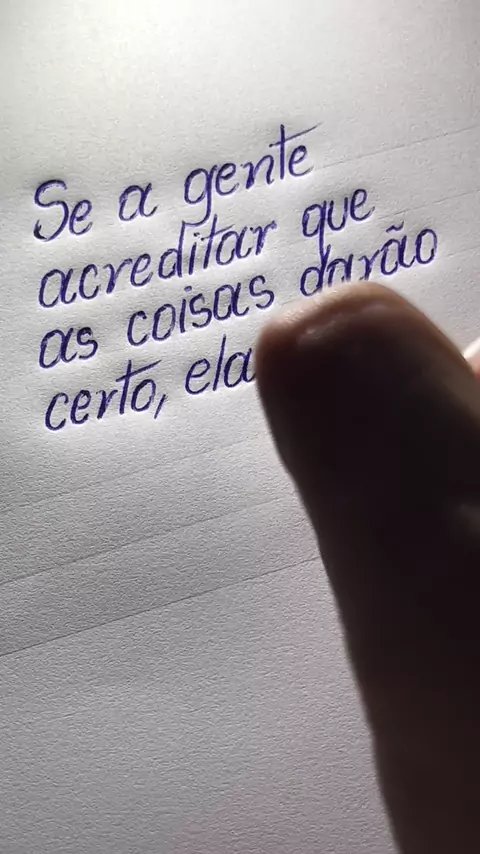 Se a gente
acreditar que
as coisas darão
certo, ela